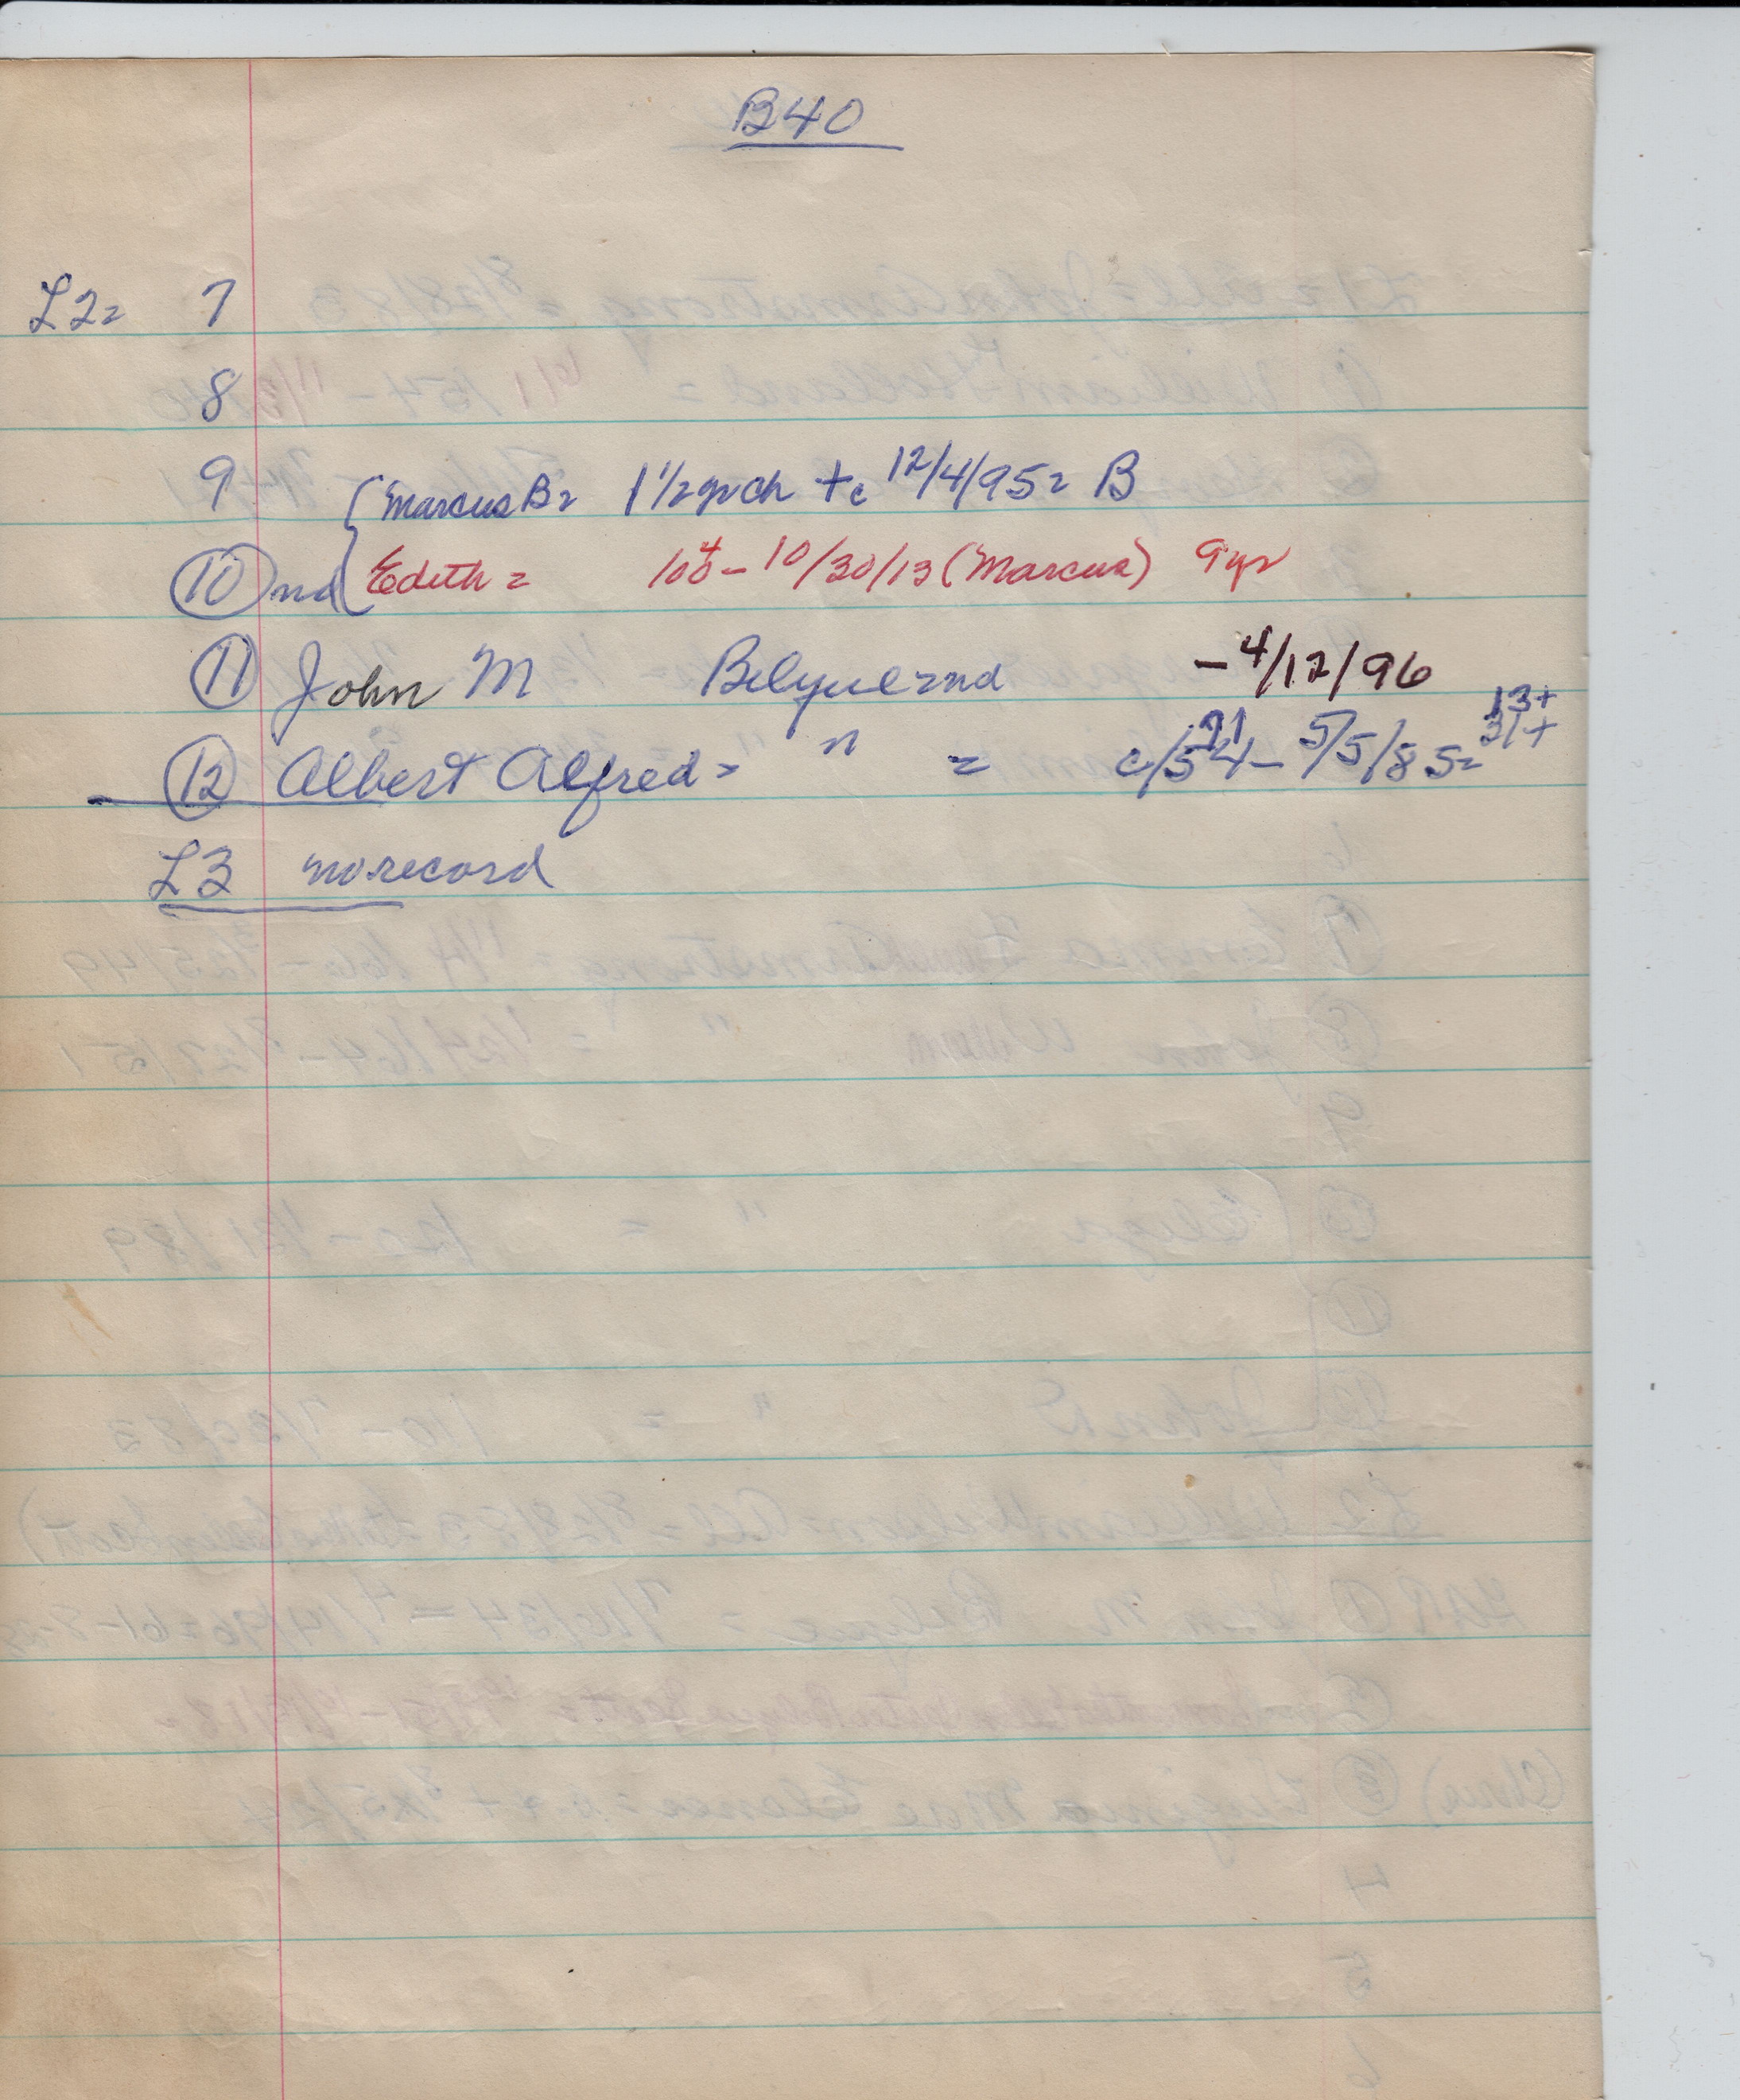 B40
L2= 7
8
9 { Marcus B= 1 1/2 yr ch + c 12/4/95= B
10 nd { Edith = - 10/30/13 (Marcus) 9yr
11 John M Belyue=nd - 4/12/96
12 Albert Alfred= " = - 5/5/85=
L3 no record